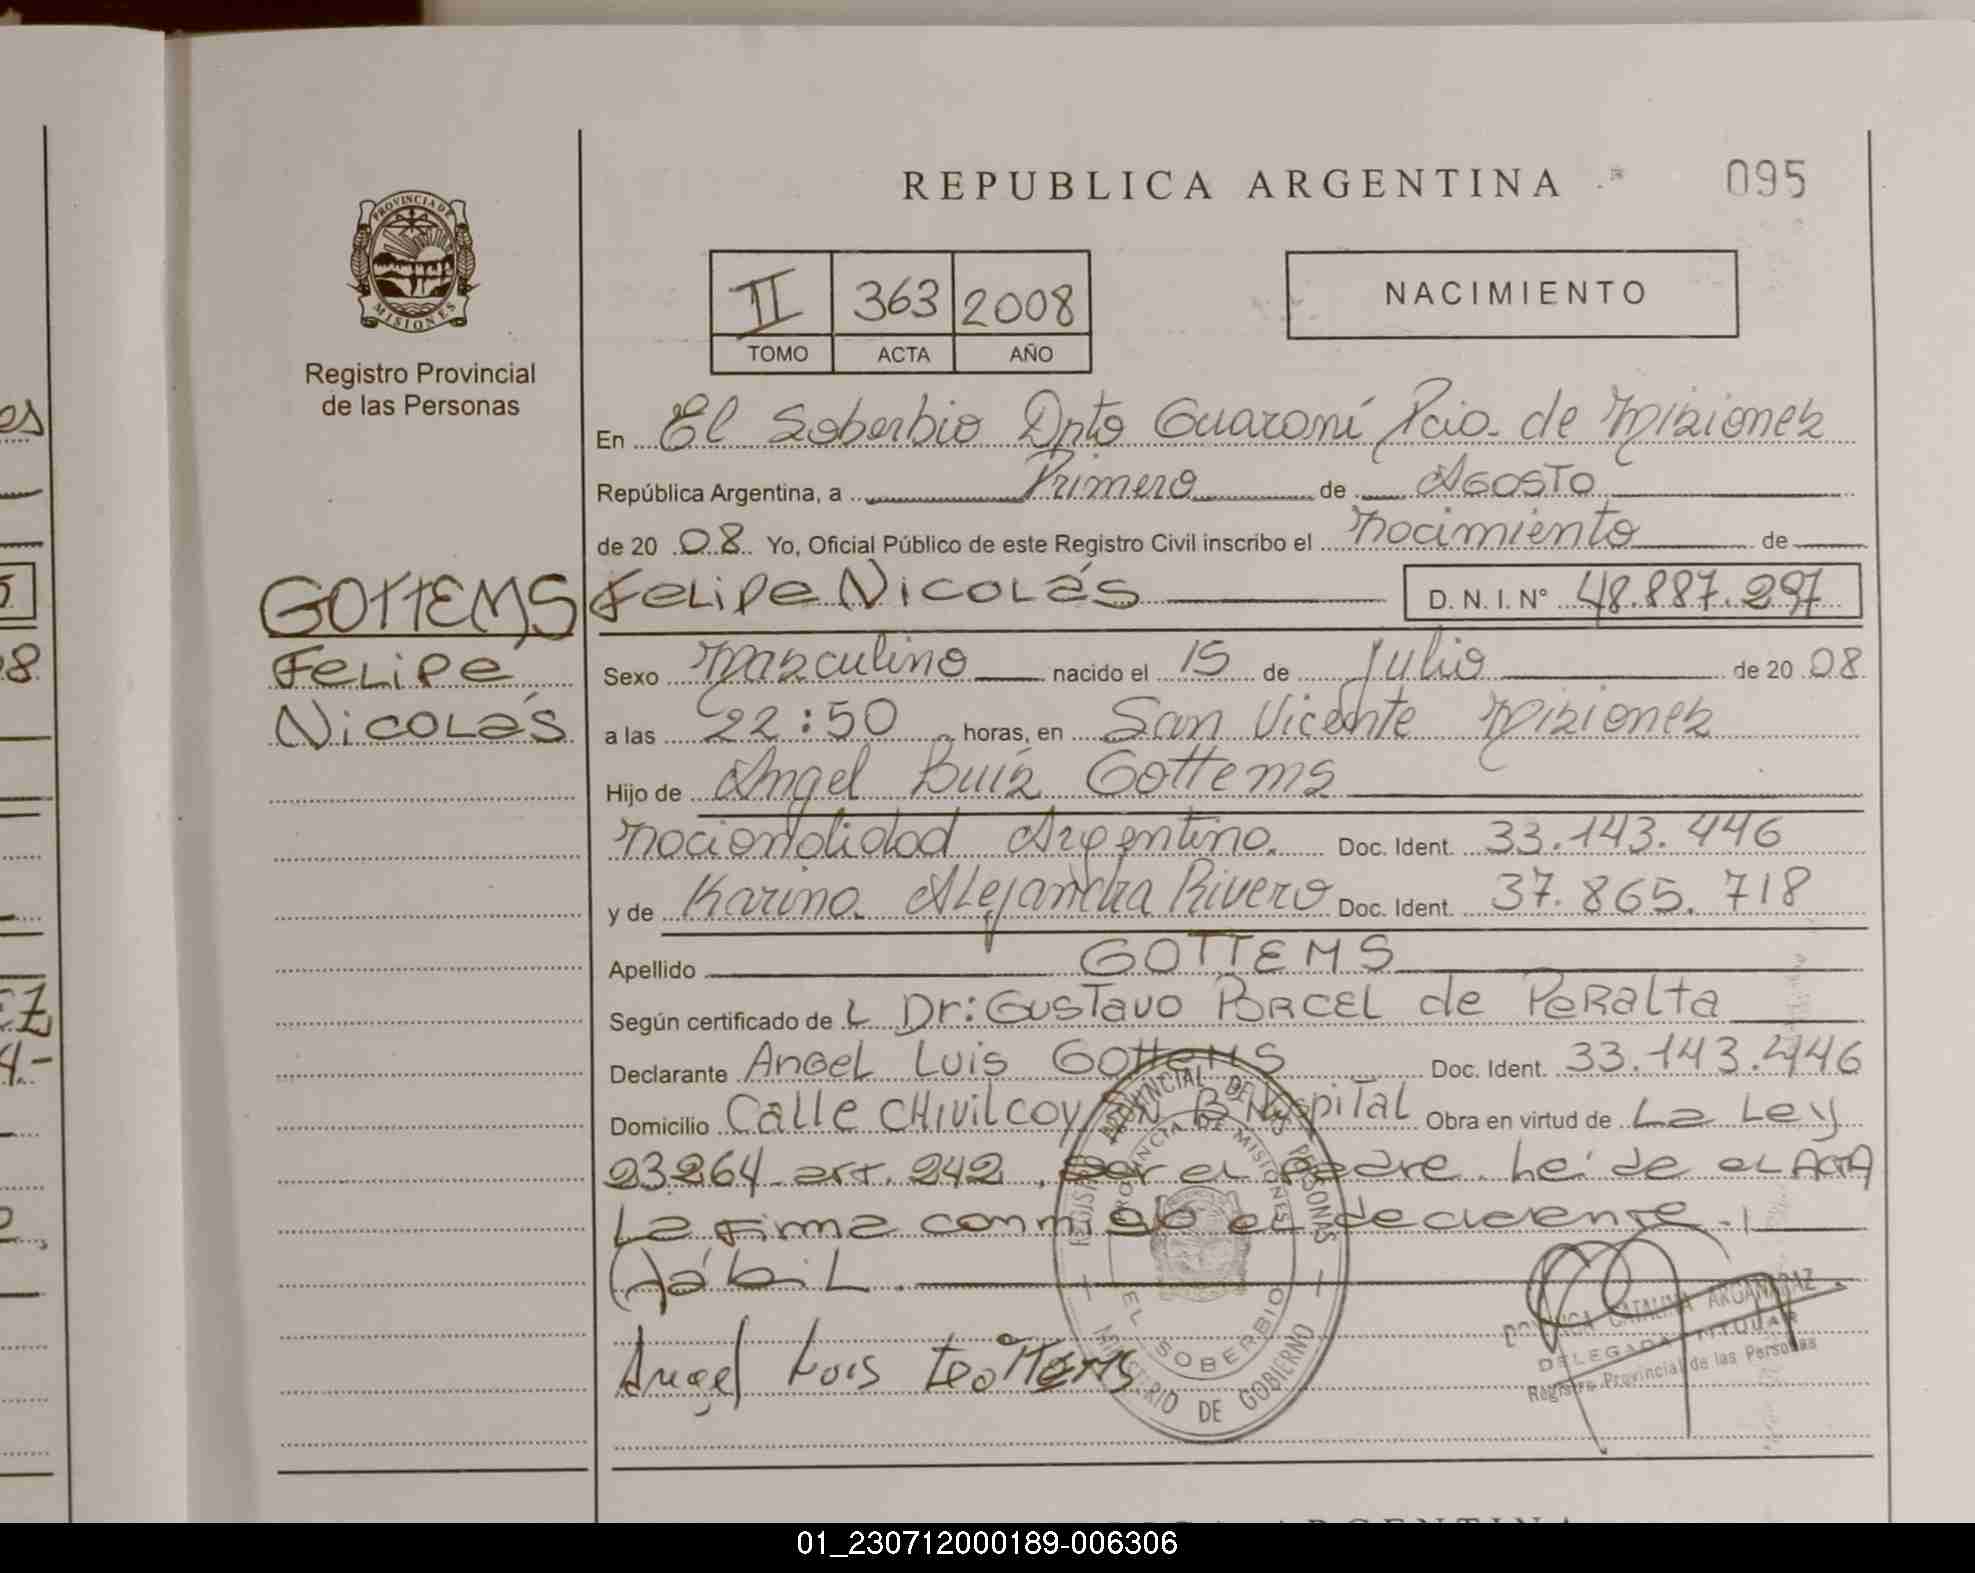 REPUBLICA ARGENTINA
095
PROVINCIA DE
MISIONES
Registro Provincial
de las Personas
II 363 2008
TOMO ACTA AÑO
NACIMIENTO
En El Soberbio Dpto Guaraní Pcia. de Misiones
República Argentina, a Primero de Agosto
de 20 08 Yo, Oficial Público de este Registro Civil inscribo el nacimiento de
GOTTEMS
Felipe
Nicolás
Felipe Nicolás D. N. I. N° 48.887.297
Sexo Masculino nacido el 15 de Julio de 20 08
a las 22:50 horas, en San Vicente Misiones
Hijo de Angel Luis Gottems
nacionalidad Argentina. Doc. Ident. 33.143.446
y de Karina Alejandra Rivero Doc. Ident. 37.865.718
Apellido GOTTEMS
Según certificado de L Dr: Gustavo PORCEL de Peralta
Declarante Angel Luis Gottems Doc. Ident. 33.143.446
Domicilio Calle CHIVILCOY B Hospital Obra en virtud de La Ley
23264 art. 242. Ser el padre. Leída el ACTA
La firma conmigo el declarante.
(H)ábil.
Angel Luis Gottems
REGISTRO PROVINCIAL DE LAS PERSONAS
PROVINCIA DE MISIONES
EL SOBERBIO
MINISTERIO DE GOBIERNO
CATALINA ARGAÑARAZ
DELEGADA TITULAR
Registro Provincial de las Personas
01_230712000189-006306